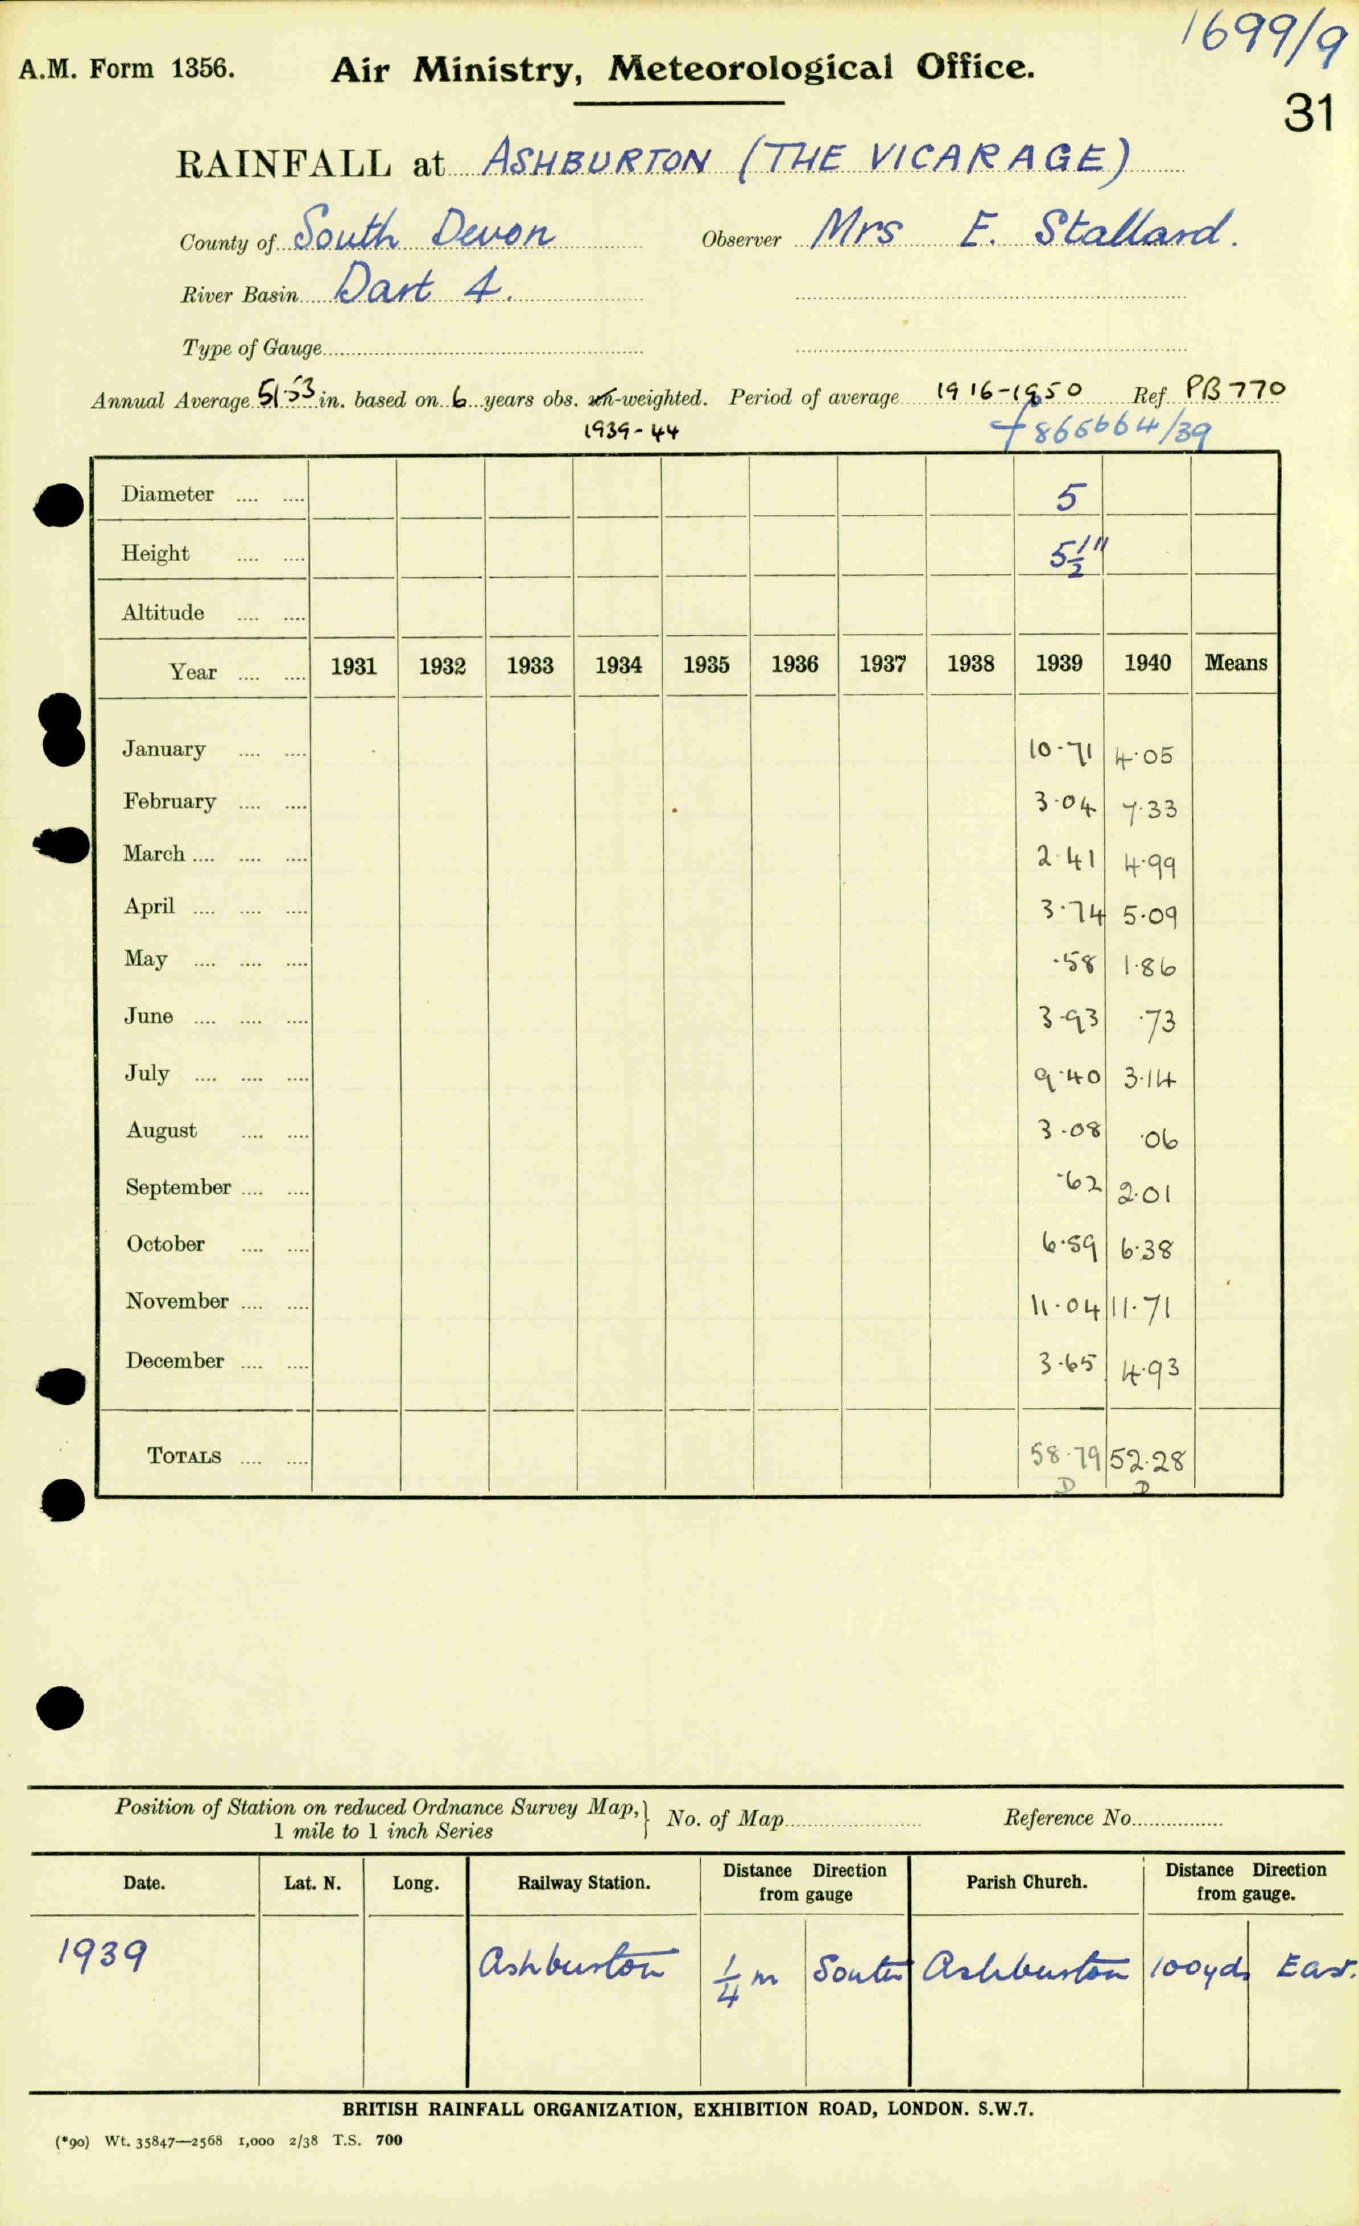 1699/9
A.M. Form 1356. Air Ministry, Meteorological Office.
31
RAINFALL at ASHBURTON (THE VICARAGE)
County of South Devon Observer Mrs E. Stallard.
River Basin Dart 4.
Type of Gauge
Annual Average 51.53 in. based on 6 years obs. -weighted. Period of average 1916-1950 Ref PB770
1939-44 866664/39
Diameter .... .... 5
Height .... .... 5½"
Altitude .... ....
Year .... .... 1931 1932 1933 1934 1935 1936 1937 1938 1939 1940 Means
January .... .... 10.71 4.05
February .... .... 3.04 7.33
March .... .... .... 2.41 4.99
April .... .... .... 3.74 5.09
May .... .... .... .58 1.86
June .... .... .... 3.93 .73
July .... .... .... 9.40 3.14
August .... .... 3.08 .06
September .... .... .62 2.01
October .... .... 6.59 6.38
November .... .... 11.04 11.71
December .... .... 3.65 4.93
TOTALS .... .... 58.79 52.28
D D
Position of Station on reduced Ordnance Survey Map,} No. of Map Reference No.
1 mile to 1 inch Series
Date. Lat. N. Long. Railway Station. Distance Direction from gauge Parish Church. Distance Direction from gauge.
1939 Ashburton ¼ m South Ashburton 100yds East.
BRITISH RAINFALL ORGANIZATION, EXHIBITION ROAD, LONDON. S.W.7.
(*90) Wt. 35847—2568 1,000 2/38 T.S. 700